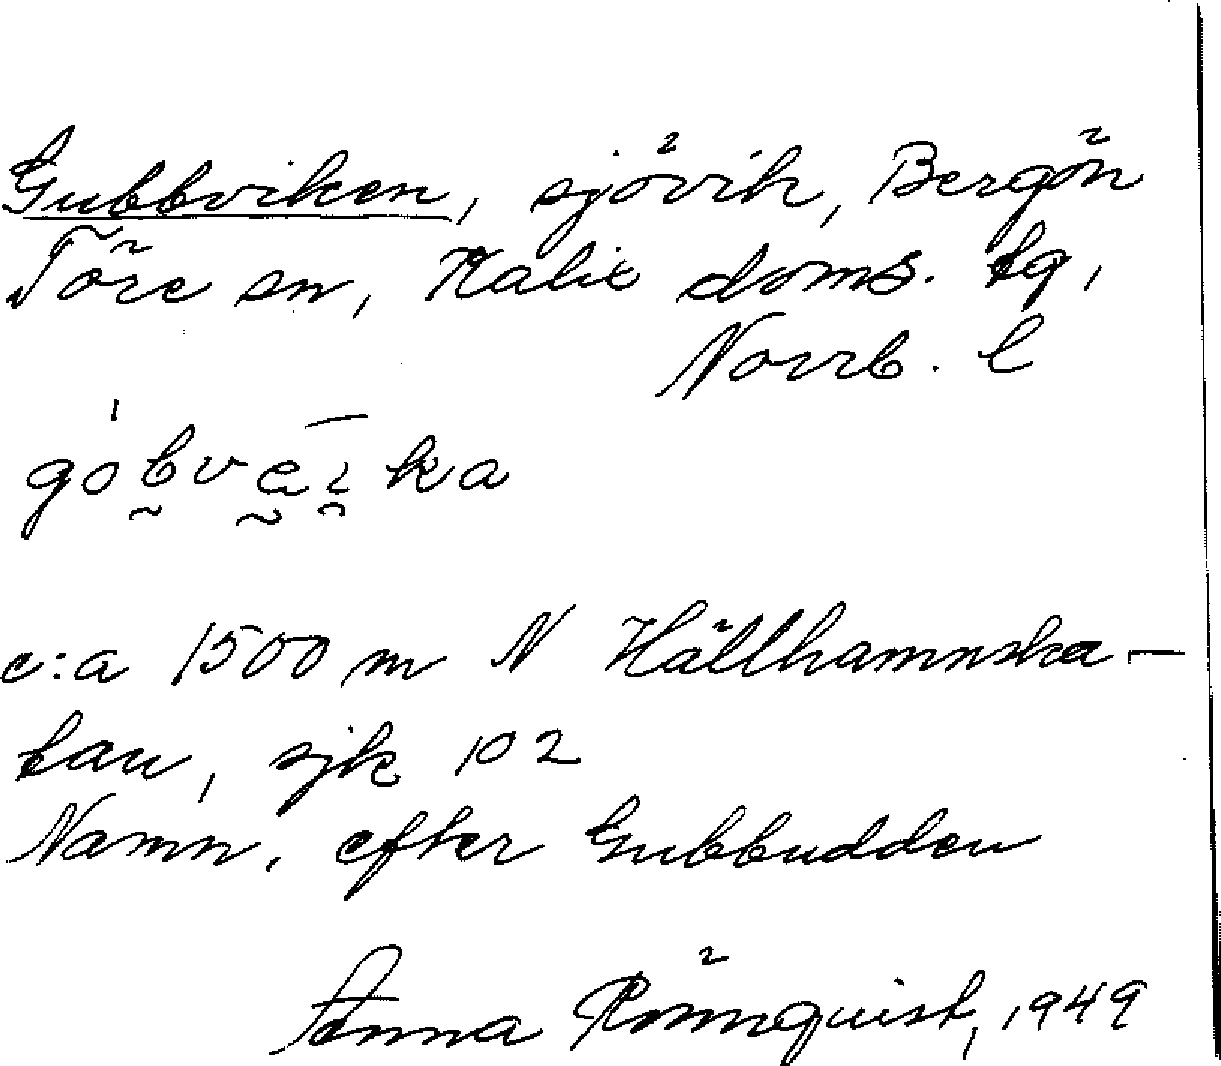 Gubbviken, sjövik, Bergön
Töre sn, Kalix doms. tg,
Norrb. l
c:a 1500 m N Hällhamnska-
tan, sjk 102
Namn. efter Gubbudden
Anna Rönnquist, 1949